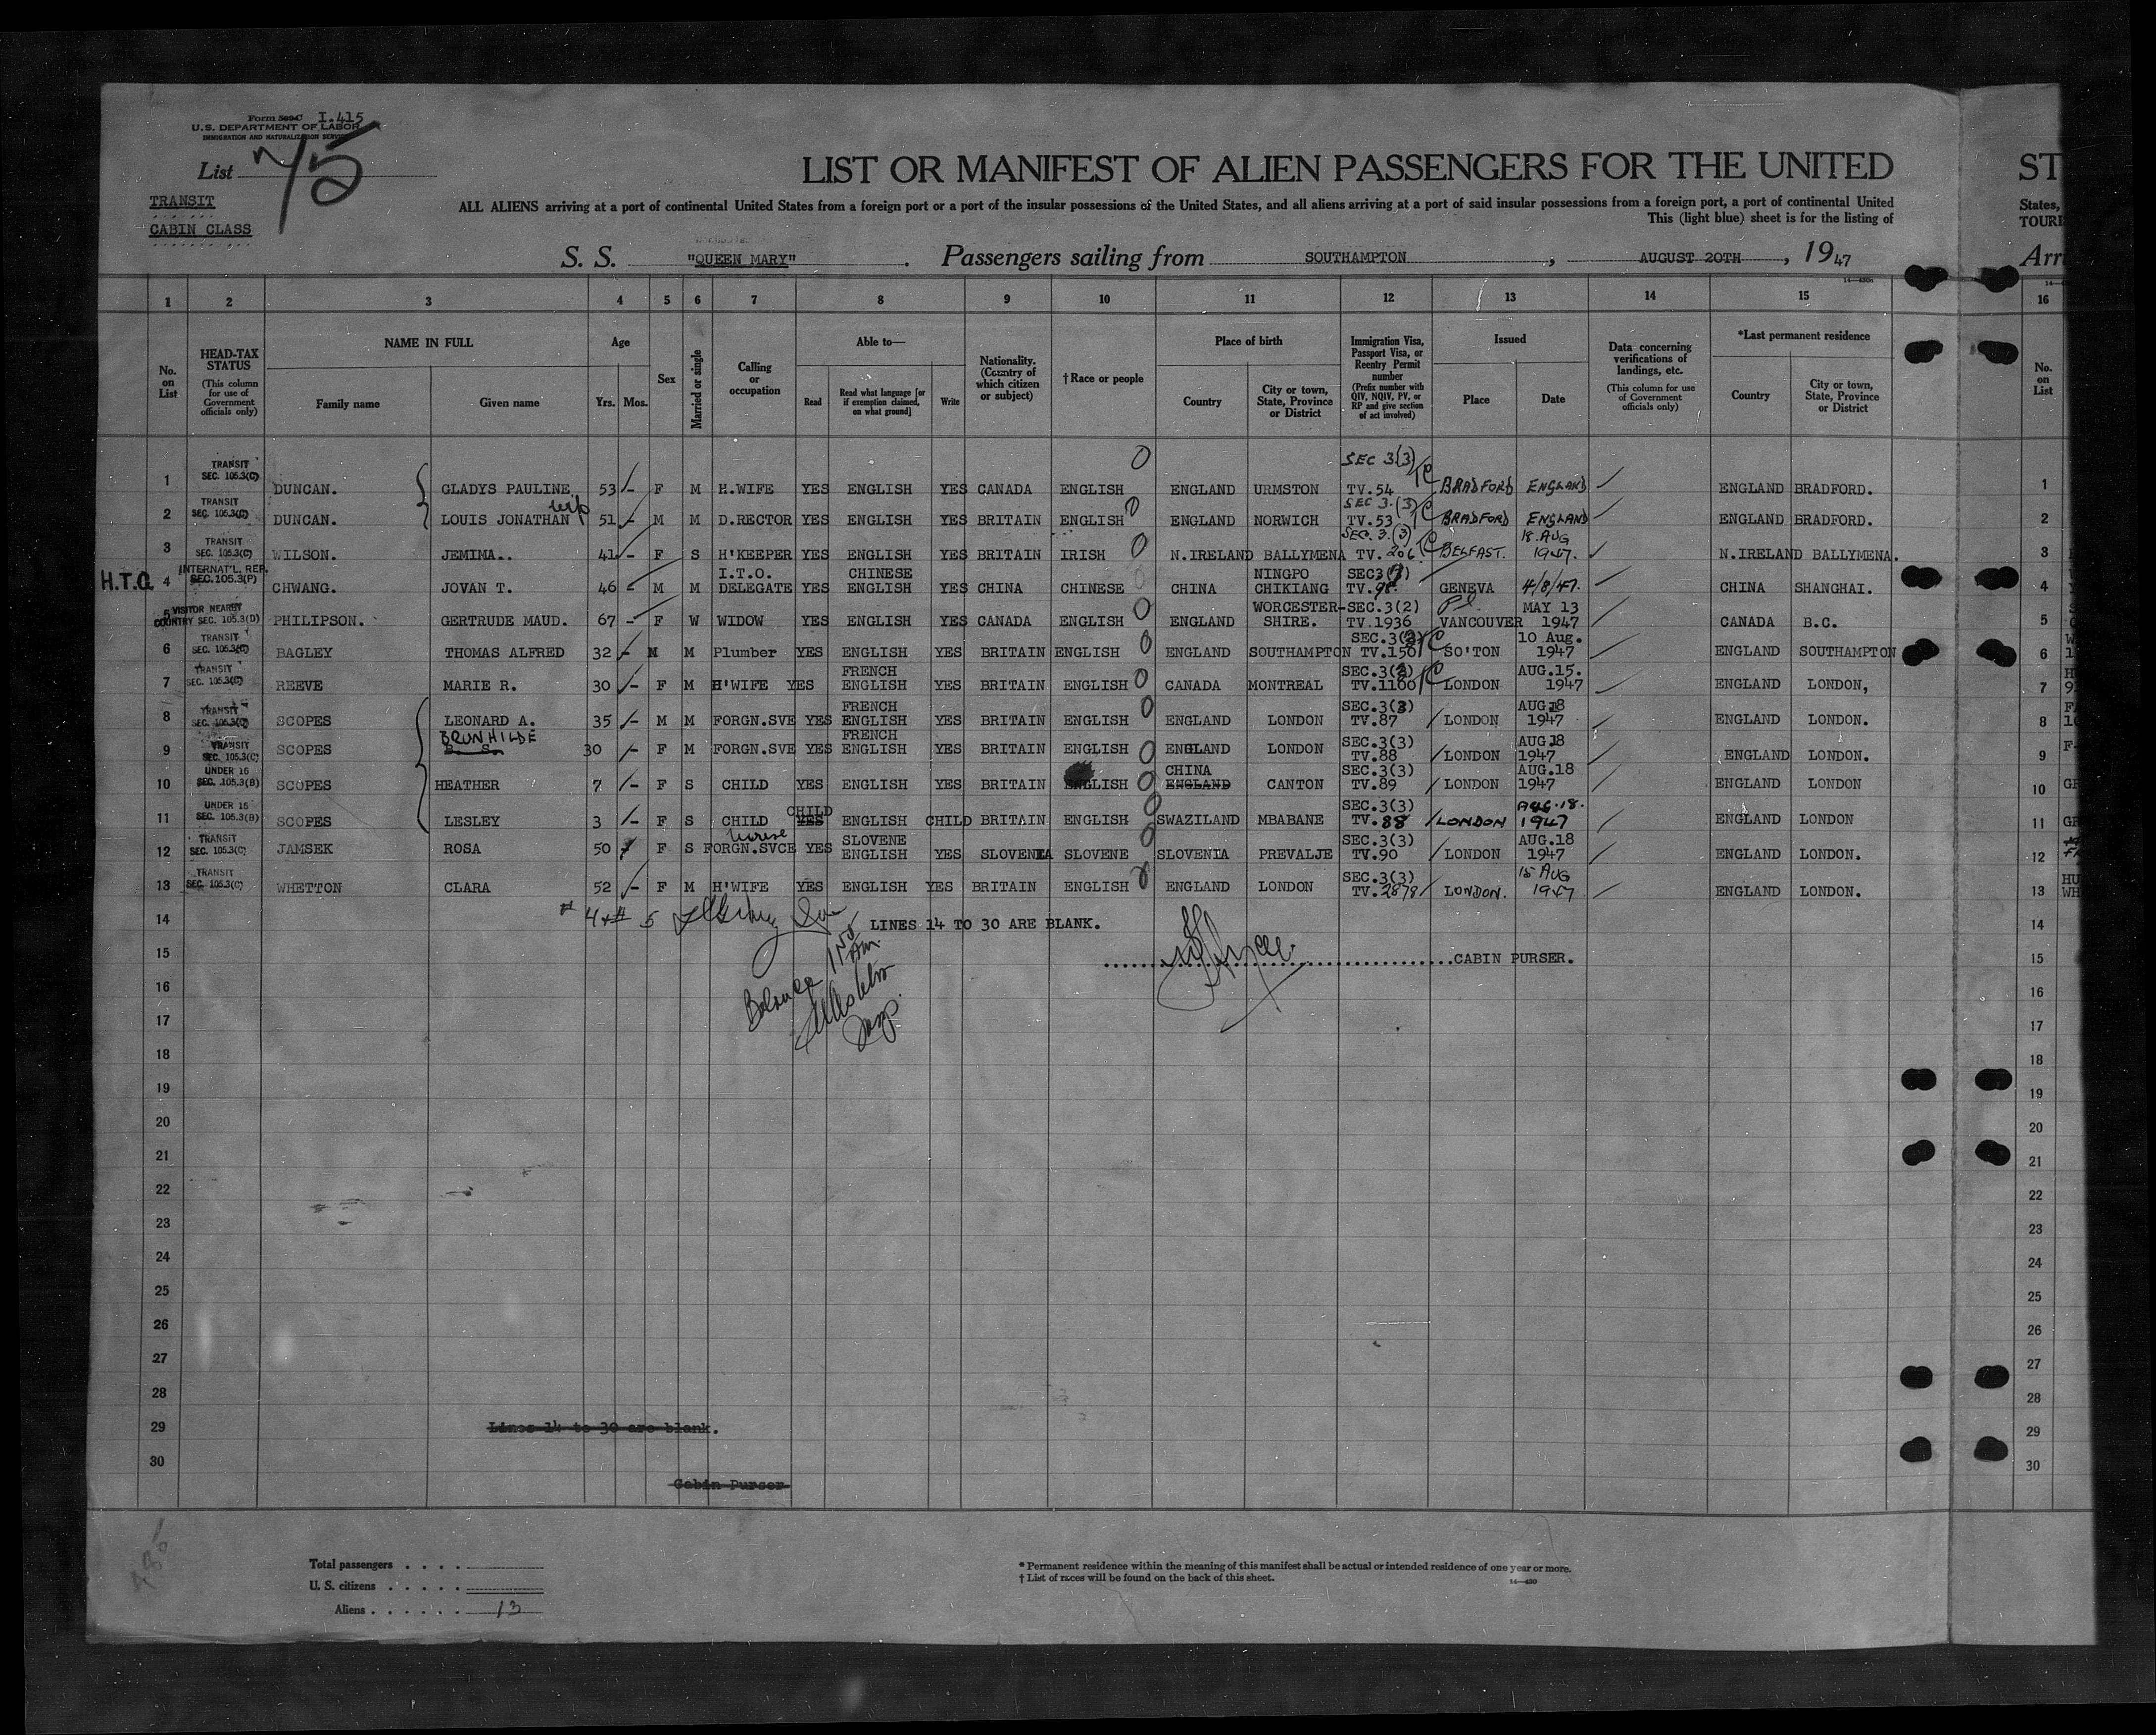 Form 500-C I.415
U.S. DEPARTMENT OF LABOR
IMMIGRATION AND NATURALIZATION SERVICE
List 75
TRANSIT
CABIN CLASS
LIST OR MANIFEST OF ALIEN PASSENGERS FOR THE UNITED ST
ALL ALIENS arriving at a port of continental United States from a foreign port or a port of the insular possessions of the United States, and all aliens arriving at a port of said insular possessions from a foreign port, a port of continental United States,
This (light blue) sheet is for the listing of TOURI
S. S. "QUEEN MARY". Passengers sailing from SOUTHAMPTON, AUGUST 20TH, 1947 Arr
1 2 3 4 5 6 7 8 9 10 11 12 13 14 15 16
No. on List
HEAD-TAX STATUS (This column for use of Government officials only)
NAME IN FULL Family name Given name
Age Yrs. Mos.
Sex
Married or single
Calling or occupation
Able to— Read Read what language [or if exemption claimed, on what ground] Write
Nationality. (Country of which citizen or subject)
†Race or people
Place of birth Country City or town, State, Province or District
Immigration Visa, Passport Visa, or Reentry Permit number (Prefix number with QIV, NQIV, PV, or RP and give section of act involved)
Issued Place Date
Data concerning verifications of landings, etc. (This column for use of Government officials only)
*Last permanent residence Country City or town, State, Province or District
No. on List
1 TRANSIT SEC. 105.3(C) DUNCAN. GLADYS PAULINE. 53 - F M H.WIFE YES ENGLISH YES CANADA ENGLISH 0 ENGLAND URMSTON SEC 3(3) TV.54 BRADFORD ENGLAND ENGLAND BRADFORD. 1
2 TRANSIT SEC. 105.3(C) DUNCAN. LOUIS JONATHAN 51 - M M D.RECTOR YES ENGLISH YES BRITAIN ENGLISH 0 ENGLAND NORWICH SEC 3.(3) TV.53 BRADFORD ENGLAND ENGLAND BRADFORD. 2
3 TRANSIT SEC. 105.3(C) WILSON. JEMIMA.. 41 - F S H'KEEPER YES ENGLISH YES BRITAIN IRISH 0 N.IRELAND BALLYMENA SEC. 3.(3) TV.206 BELFAST. 18.AUG 1947. N.IRELAND BALLYMENA. 3
H.T.O. 4 INTERNAT'L. REP. SEC. 105.3(P) CHWANG. JOVAN T. 46 - M M I.T.O. DELEGATE YES CHINESE ENGLISH YES CHINA CHINESE 0 CHINA NINGPO CHIKIANG SEC3(7) TV.98. GENEVA 4/8/47. CHINA SHANGHAI. 4
5 VISITOR NEARBY COUNTRY SEC. 105.3(D) PHILIPSON. GERTRUDE MAUD. 67 - F W WIDOW YES ENGLISH YES CANADA ENGLISH 0 ENGLAND WORCESTER-SHIRE. SEC.3(2) TV.1936 VANCOUVER MAY 13 1947 CANADA B.C. 5
6 TRANSIT SEC. 105.3(C) BAGLEY THOMAS ALFRED 32 - M M Plumber YES ENGLISH YES BRITAIN ENGLISH 0 ENGLAND SOUTHAMPTON TV.150 SO'TON 10 Aug. 1947 ENGLAND SOUTHAMPTON 6
7 TRANSIT SEC. 105.3(C) REEVE MARIE R. 30 - F M H'WIFE YES FRENCH ENGLISH YES BRITAIN ENGLISH 0 CANADA MONTREAL TV.1100 LONDON AUG.15. 1947 ENGLAND LONDON, 7
8 TRANSIT SEC. 105.3(C) SCOPES LEONARD A. 35 - M M FORGN.SVE YES FRENCH ENGLISH YES BRITAIN ENGLISH 0 ENGLAND LONDON SEC.3(3) TV.87 LONDON AUG 18 1947 ENGLAND LONDON. 8
9 TRANSIT SEC. 105.3(C) SCOPES BRUNHILDE 30 - F M FORGN.SVE YES FRENCH ENGLISH YES BRITAIN ENGLISH 0 ENGLAND LONDON SEC.3(3) TV.88 LONDON AUG 18 1947 ENGLAND LONDON. 9
10 UNDER 16 SEC. 105.3(B) SCOPES HEATHER 7 - F S CHILD YES ENGLISH YES BRITAIN ENGLISH 0 CHINA ENGLAND CANTON SEC.3(3) TV.89 LONDON AUG.18 1947 ENGLAND LONDON 10
11 UNDER 16 SEC. 105.3(B) SCOPES LESLEY 3 - F S CHILD CHILD YES ENGLISH CHILD BRITAIN ENGLISH 0 SWAZILAND MBABANE SEC.3(3) TV.88 LONDON AUG.18. 1947 ENGLAND LONDON 11
12 TRANSIT SEC. 105.3(C) JAMSEK ROSA 50 F S Nurse FORGN.SVCE YES SLOVENE ENGLISH YES SLOVENIA SLOVENE 0 SLOVENIA PREVALJE SEC.3(3) TV.90 LONDON AUG.18 1947 ENGLAND LONDON. 12
13 TRANSIT SEC. 105.3(C) WHETTON CLARA 52 - F M H'WIFE YES ENGLISH YES BRITAIN ENGLISH ENGLAND LONDON SEC.3(3) TV.2878 LONDON. 15 AUG 1947 ENGLAND LONDON. 13
14 LINES 14 TO 30 ARE BLANK. 14
15 CABIN PURSER. 15
16 16
Balance
17 17
18 18
19 19
20 20
21 21
22 22
23 23
24 24
25 25
26 26
27 27
28 28
29 Lines 14 to 30 are blank. 29
30 30
Cabin Purser
Total passengers . . . .
U. S. citizens . . . . .
Aliens . . . . . . 13
* Permanent residence within the meaning of this manifest shall be actual or intended residence of one year or more.
† List of races will be found on the back of this sheet.